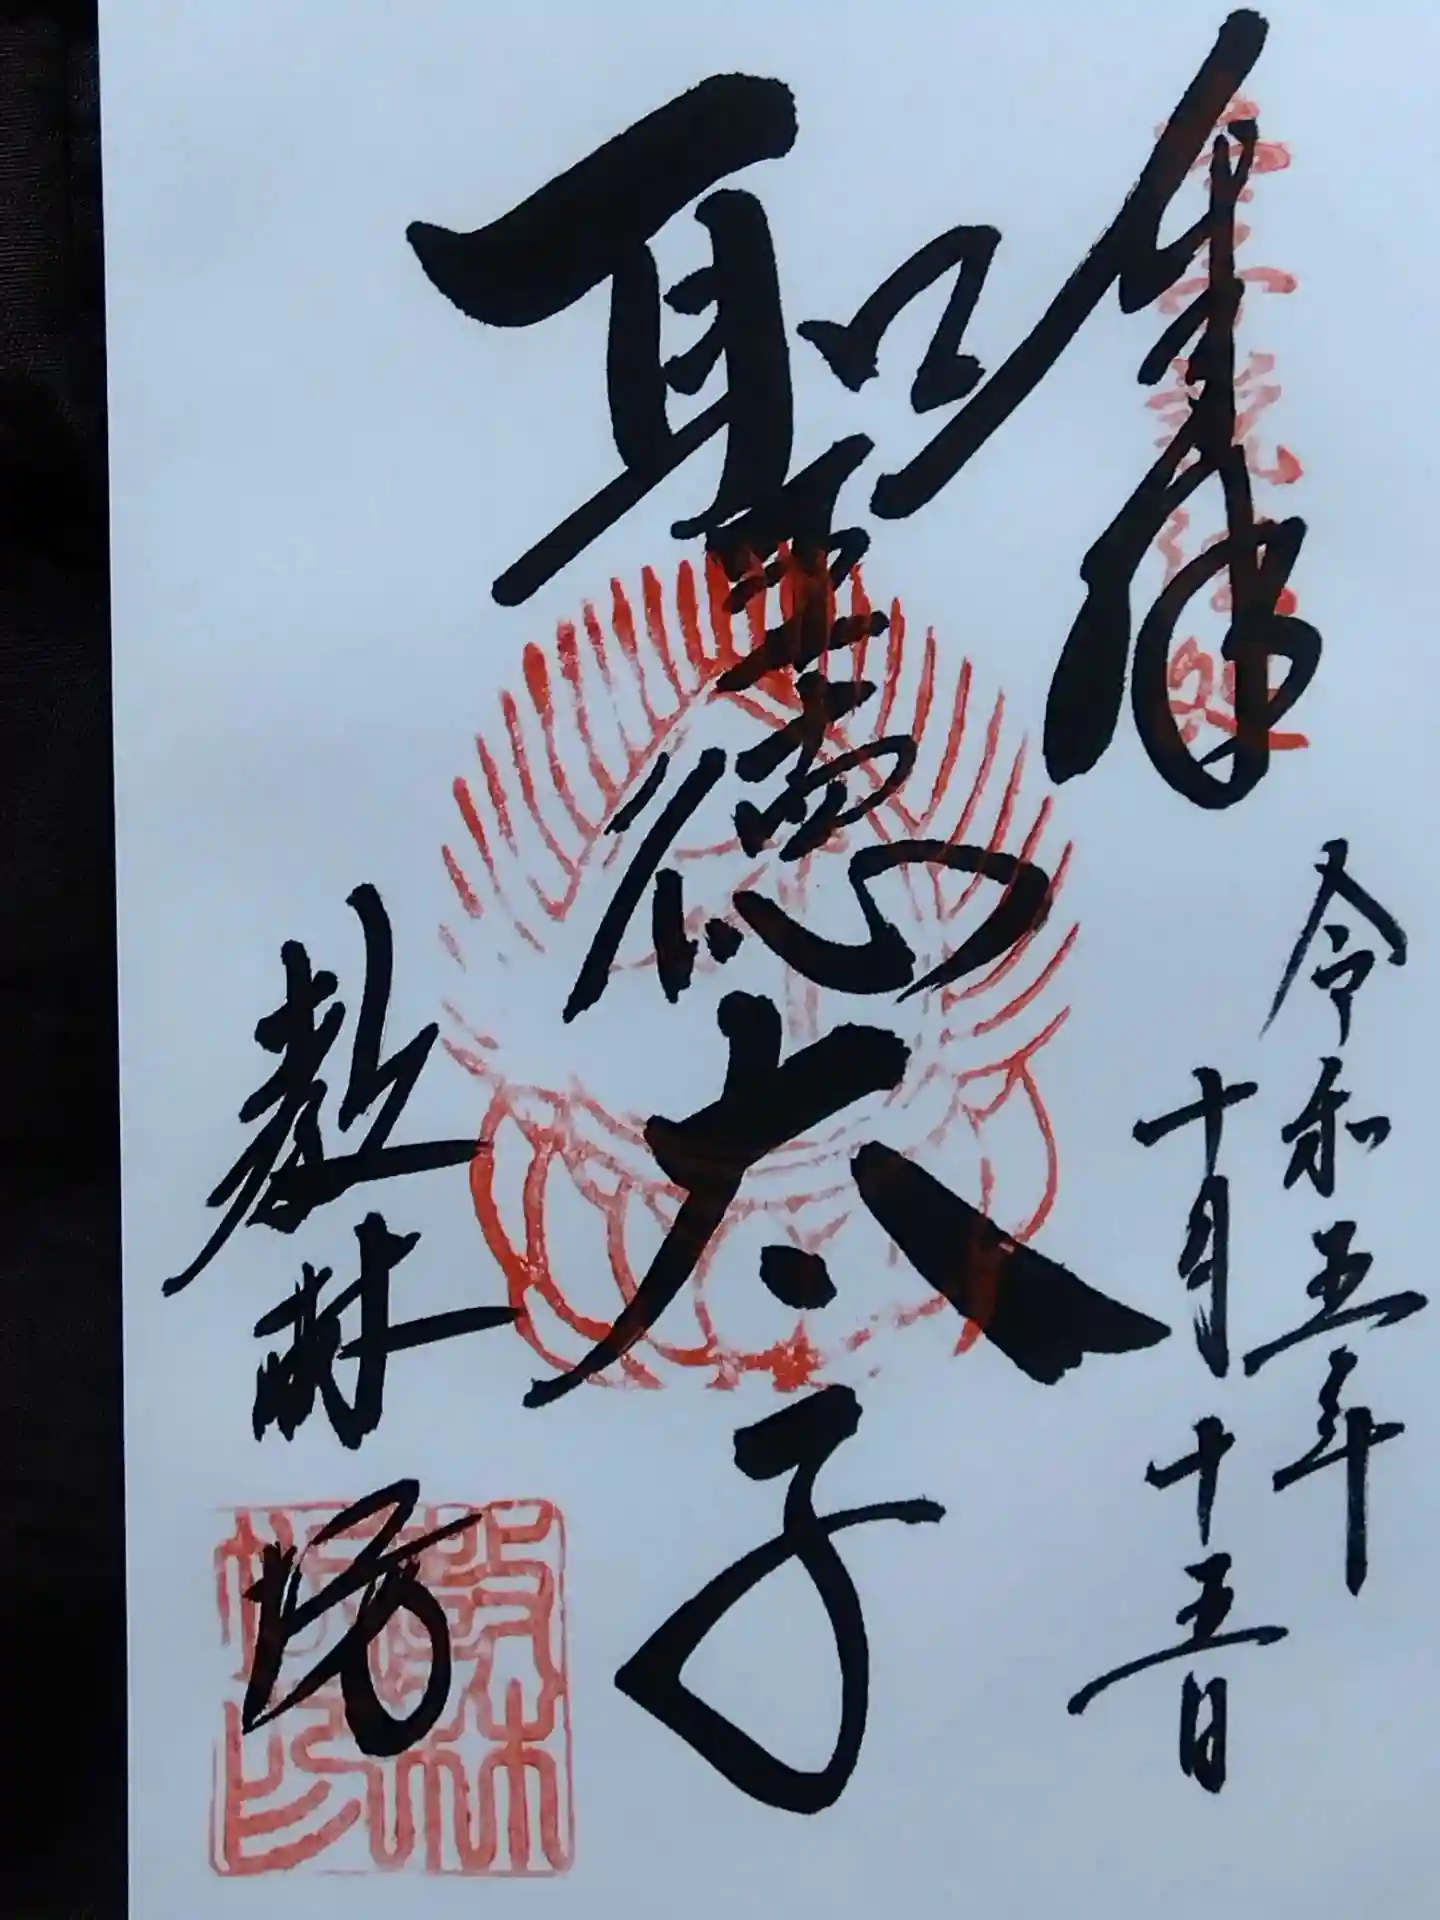 奉拝
令和五年
十月十五日
聖德太子
教林坊
教林坊印